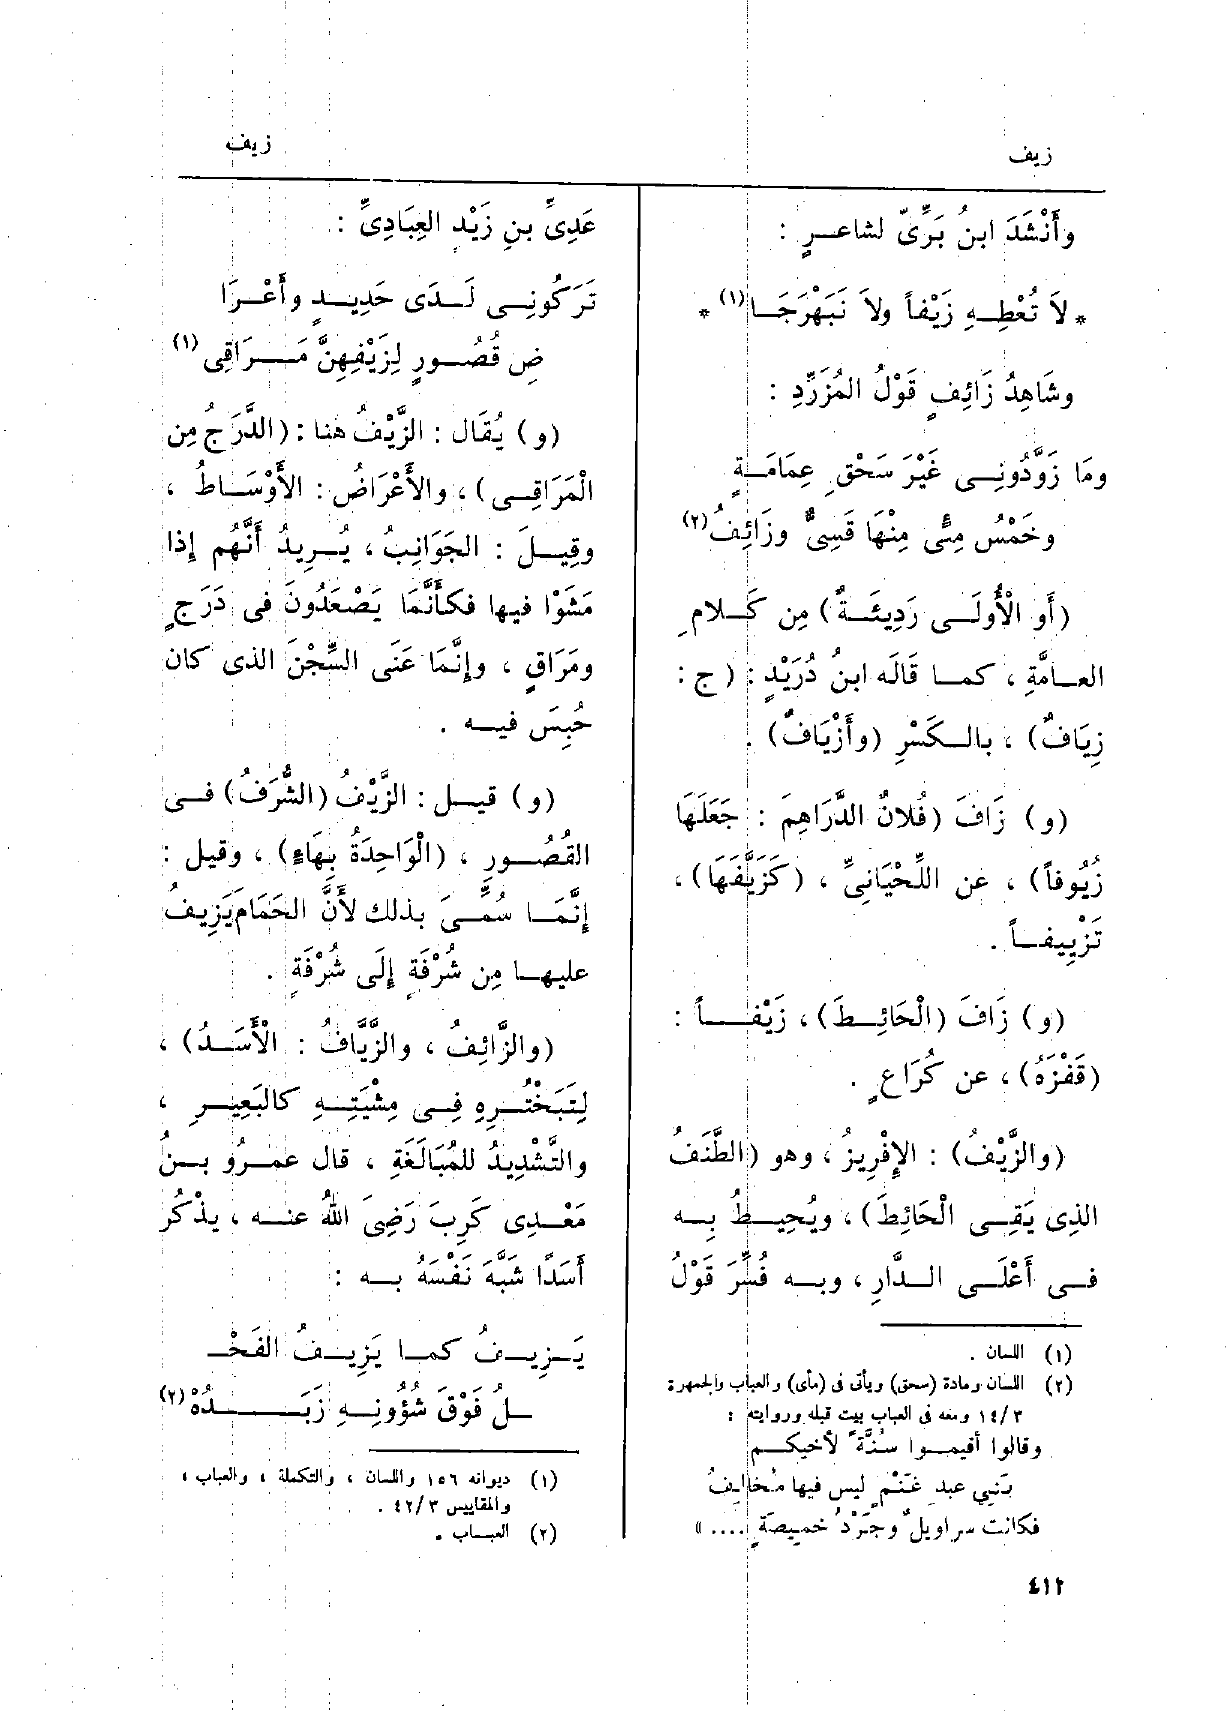 زيف
زيف
وأَنْشَدَ ابنُ بَرِّىّ لشاعـرٍ :
* لاَ تُعْطِـهِ زَيْفاً ولاَ نَبَهْرَجَـا (١) *
وشَاهِدُ زَائِفٍ قَوْلُ المُزَرِّدِ :
ومَا زَوَّدُونِـى غَيْرَ سَحْقِ عِمَامَـةٍ
وخَمْسُ مِئًى مِنْهَا قَسِىٌّ وزَائِفُ (٢)
(أَو الْأُولَـى رَدِيئَـةٌ) مِن كَـلامِ
العـامَّةِ ، كمـا قَالَه ابنُ دُرَيْدٍ : (ج :
زِيَافٌ) ، بالـكَسْرِ (وأَزْيَافٌ) .
(و) زَافَ (فُلانٌ الدَّرَاهِمَ : جَعَلَهَا
زُيُوفاً) ، عن اللِّحْيَانِىِّ ، (كَزَيَّفَهَا) ،
تَزْيِيفـاً .
(و) زَافَ (الْحَائِـطَ) ، زَيْفـاً :
(قَفْزَهُ) ، عن كُرَاعٍ .
(والزَّيْفُ) : الإِفْرِيزُ ، وهو (الطَّنَفُ
الذِى يَقِـى الْحَائِطَ) ، ويُحِيـطُ بِـه
فـى أَعْلَـى الـدَّارِ ، وبـه فُسِّرَ قَوْلُ
(١) اللسان .
(٢) اللسان ومادة (سحق) ويأتى فى (مأى) والعباب والجمهرة
٣ /١٤ ومعه فى العباب بيت قبله وروايته :
وقالوا أقيمـوا سُنَّةً لأخيكـم
بَنِي عبدِ غَنْمٍ ليس فيها مُخالِفُ
فكانت سراويلٌ وجَرْدُ خميصَةٍ .... »
٤١٢
عَدِىِّ بنِ زَيْد العِبَادِىِّ :
تَرَكُونِـى لَـدَى حَدِيـدٍ وأَعْـرَا
ضِ قُصُـورٍ لِزَيْفِهِنَّ مَـرَاقِى (١)
(و) يُقَال : الزَّيْفُ هنا : (الدَّرَجُ مِن
الْمَرَاقِـى) ، والأَعْرَاضُ : الأَوْسَـاطُ ،
وقِيـلَ : الجَوَانِبُ ، يُـرِيدُ أَنَّهُم إِذا
مَشَوْا فيها فكأَنَّمَا يَصْعَدُونَ فى دَرَجٍ
ومَرَاقٍ ، وإِنَّمَا عَنَى السِّجْنَ الذى كان
حُبِسَ فيـه .
(و) قيـل : الزَّيْفُ (الشُّرَفُ) فـى
القُصُـورِ ، (الْوَاحِدَةُ بِهَاءٍ) ، وقيل :
إِنَّمَـا سُمِّـىَ بذلك لأَنَّ الحَمَام يَزِيفُ
عليهـا مِن شُرْفَةٍ إِلَى شُرْفَةٍ .
(والزَّائِفُ ، والزَّيَّافُ : الْأَسَـدُ) ،
لِتَبَخْتُـرِهِ فِـى مِشْيَتِـهِ كالبَعِيـرِ ،
والتَّشْدِيدُ للمُبَالَغَةِ ، قال عمـرُو بـنُ
مَعْـدِى كَرِبَ رَضِىَ اللهُ عنـه ، يذْكُر
أَسَدًا شَبَّهَ نَفْسَهُ بـه :
يَـزِيـفُ كمـا يَزِيـفُ الفَحْـ
ـلُ فَوْقَ شُؤُونِـهِ زَبَـدُهْ (٢)
(١) ديوانه ١٥٦ واللسان ، والتكملة ، والعباب ،
والمقاييس ٣ /٤٢ .
(٢) العباب .